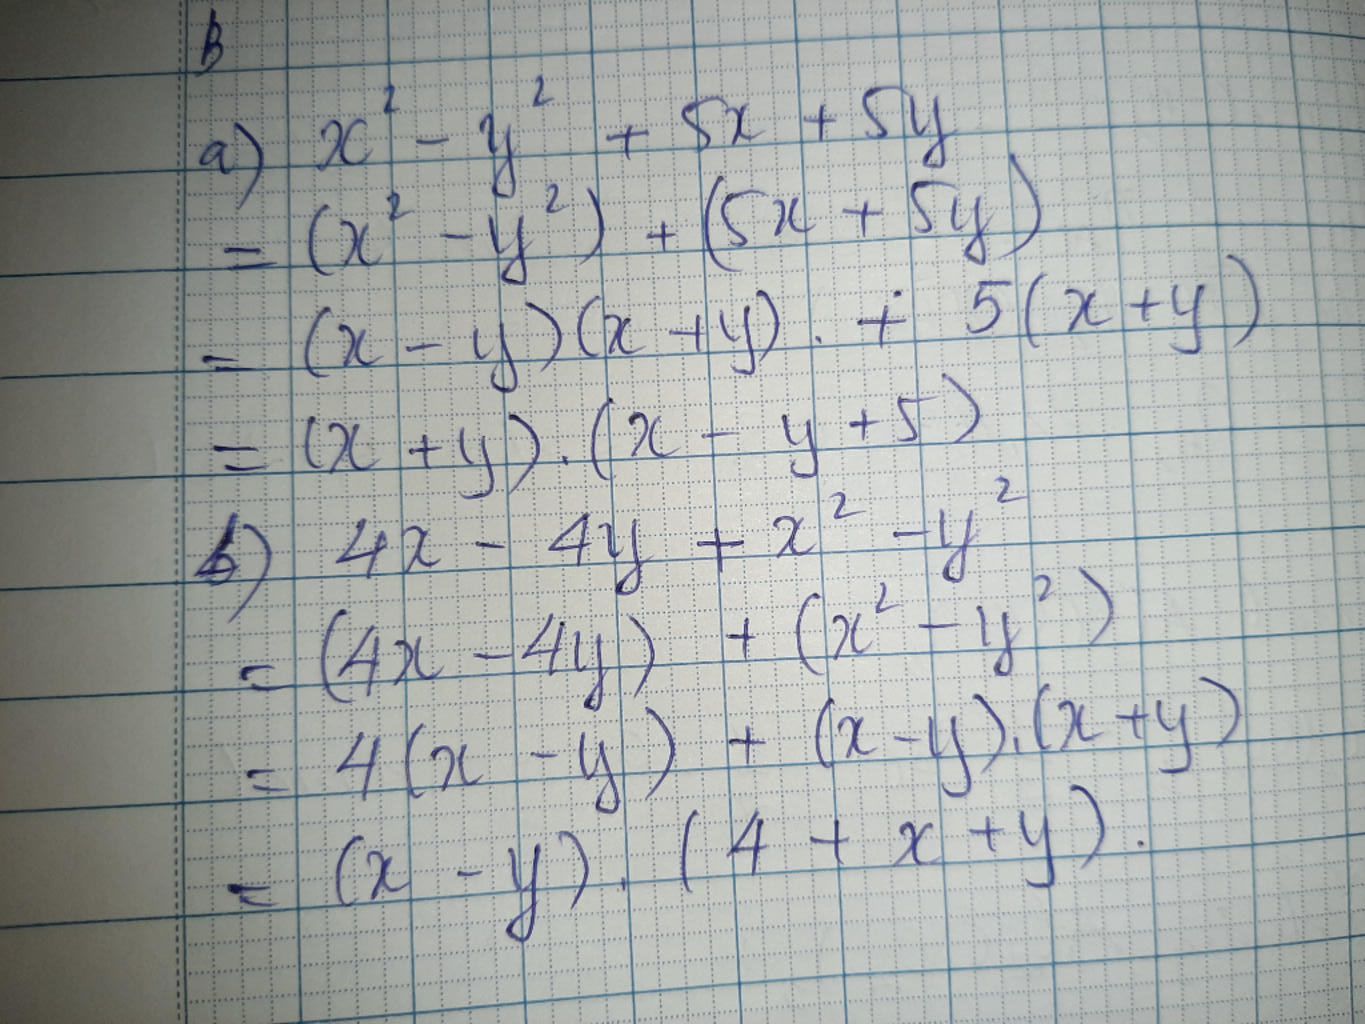 B
a) x² - y² + 5x + 5y
= (x² - y²) + (5x + 5y)
= (x - y)(x + y). + 5(x + y)
= (x + y).(x - y + 5)
b) 4x - 4y + x² - y²
= (4x - 4y) + (x² - y²)
= 4(x - y) + (x - y).(x + y)
= (x - y).(4 + x + y).